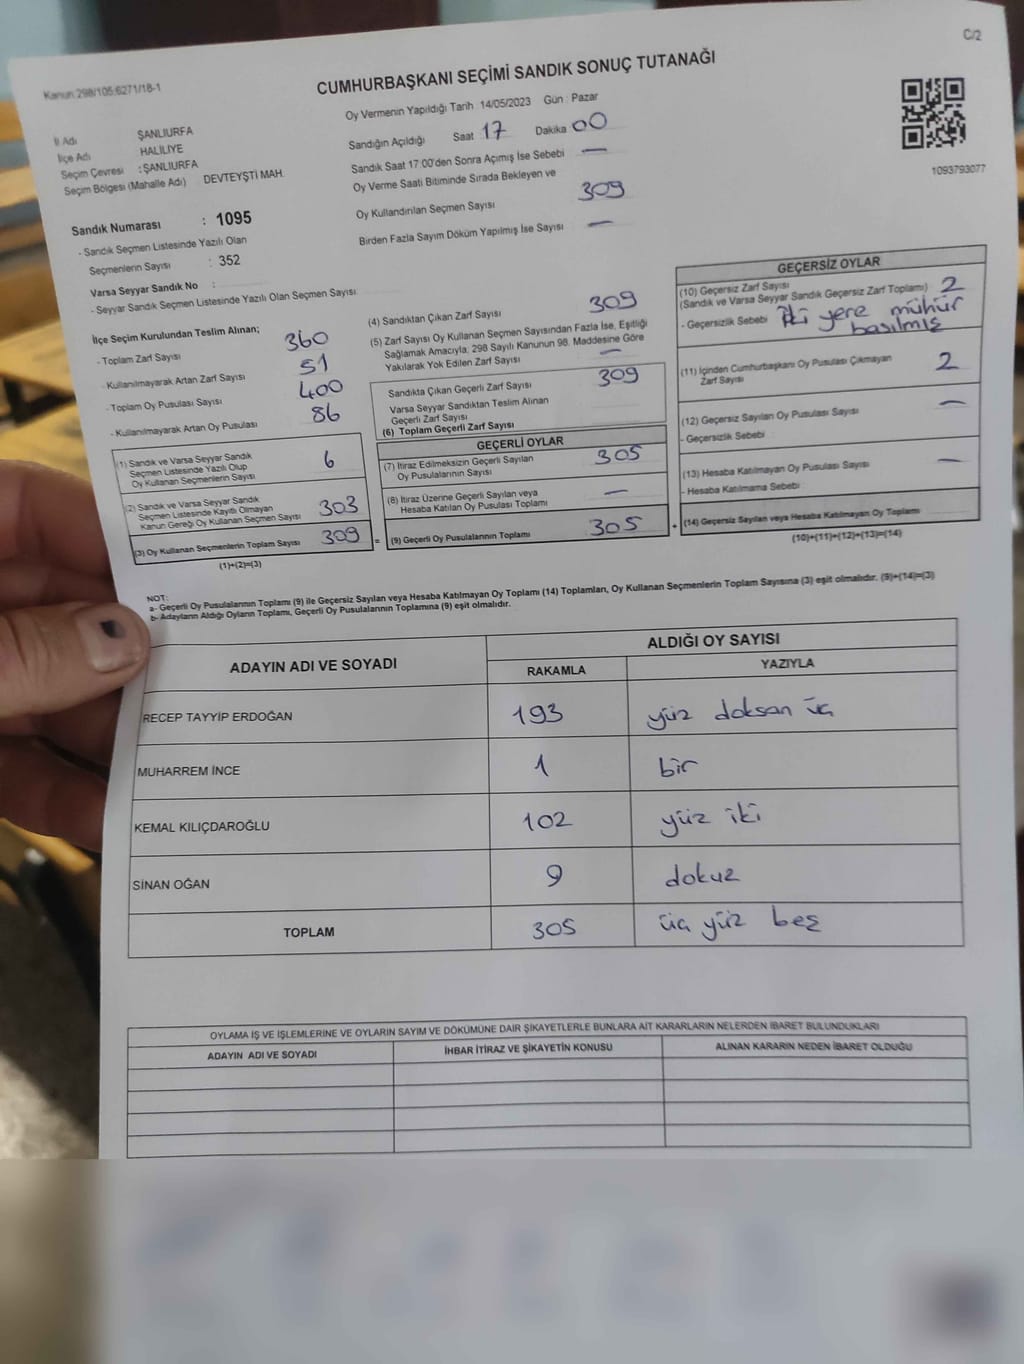 C/2
Kanun 298/105:6271/18-1
CUMHURBAŞKANI SEÇİMİ SANDIK SONUÇ TUTANAĞI
İl Adı ŞANLIURFA
İlçe Adı HALİLİYE
Seçim Çevresi : ŞANLIURFA
Seçim Bölgesi (Mahalle Adı) DEVTEYŞTİ MAH.
Sandık Numarası : 1095
- Sandık Seçmen Listesinde Yazılı Olan
Seçmenlerin Sayısı : 352
Varsa Seyyar Sandık No :
- Seyyar Sandık Seçmen Listesinde Yazılı Olan Seçmen Sayısı
Oy Vermenin Yapıldığı Tarih 14/05/2023 Gün : Pazar
Sandığın Açıldığı Saat 17 Dakika 00
Sandık Saat 17:00'den Sonra Açımış İse Sebebi —
Oy Verme Saati Bitiminde Sırada Bekleyen ve
Oy Kullandırılan Seçmen Sayısı 309
Birden Fazla Sayım Döküm Yapılmış İse Sayısı —
1093793077
İlçe Seçim Kurulundan Teslim Alınan;
- Toplam Zarf Sayısı 360
- Kullanılmayarak Artan Zarf Sayısı 51
- Toplam Oy Pusulası Sayısı 400
- Kullanılmayarak Artan Oy Pusulası 86
(1) Sandık ve Varsa Seyyar Sandık
Seçmen Listesinde Yazılı Olup
Oy Kullanan Seçmenlerin Sayısı 6
(2) Sandık ve Varsa Seyyar Sandık
Seçmen Listesinde Kayıtlı Olmayan
Kanun Gereği Oy Kullanan Seçmen Sayısı 303
(3) Oy Kullanan Seçmenlerin Toplam Sayısı 309 =
(1)+(2)=(3)
(4) Sandıktan Çıkan Zarf Sayısı 309
(5) Zarf Sayısı Oy Kullanan Seçmen Sayısından Fazla İse, Eşitliği
Sağlamak Amacıyla, 298 Sayılı Kanunun 98. Maddesine Göre
Yakılarak Yok Edilen Zarf Sayısı —
Sandıkta Çıkan Geçerli Zarf Sayısı 309
Varsa Seyyar Sandıktan Teslim Alınan
Geçerli Zarf Sayısı
(6) Toplam Geçerli Zarf Sayısı
GEÇERLİ OYLAR
(7) İtiraz Edilmeksizin Geçerli Sayılan
Oy Pusulalarının Sayısı 305
(8) İtiraz Üzerine Geçerli Sayılan veya
Hesaba Katılan Oy Pusulası Toplamı —
(9) Geçerli Oy Pusulalarının Toplamı 305 +
GEÇERSİZ OYLAR
(10) Geçersiz Zarf Sayısı
(Sandık ve Varsa Seyyar Sandık Geçersiz Zarf Toplamı) 2
- Geçersizlik Sebebi İki yere mühür
basılmış
(11) İçinden Cumhurbaşkanı Oy Pusulası Çıkmayan
Zarf Sayısı 2
(12) Geçersiz Sayılan Oy Pusulası Sayısı —
- Geçersizlik Sebebi
(13) Hesaba Katılmayan Oy Pusulası Sayısı —
- Hesaba Katılmama Sebebi
(14) Geçersiz Sayılan veya Hesaba Katılmayan Oy Toplamı
(10)+(11)+(12)+(13)=(14)
NOT:
a- Geçerli Oy Pusulalarının Toplamı (9) ile Geçersiz Sayılan veya Hesaba Katılmayan Oy Toplamı (14) Toplamları, Oy Kullanan Seçmenlerin Toplam Sayısına (3) eşit olmalıdır. (9)+(14)=(3)
b- Adayların Aldığı Oyların Toplamı, Geçerli Oy Pusulalarının Toplamına (9) eşit olmalıdır.
ADAYIN ADI VE SOYADI ALDIĞI OY SAYISI
RAKAMLA YAZIYLA
RECEP TAYYİP ERDOĞAN 193 yüz doksan üç
MUHARREM İNCE 1 bir
KEMAL KILIÇDAROĞLU 102 yüz iki
SİNAN OĞAN 9 dokuz
TOPLAM 305 üç yüz beş
OYLAMA İŞ VE İŞLEMLERİNE VE OYLARIN SAYIM VE DÖKÜMÜNE DAİR ŞİKAYETLERLE BUNLARA AİT KARARLARIN NELERDEN İBARET BULUNDUKLARI
ADAYIN ADI VE SOYADI İHBAR İTİRAZ VE ŞİKAYETİN KONUSU ALINAN KARARIN NEDEN İBARET OLDUĞU